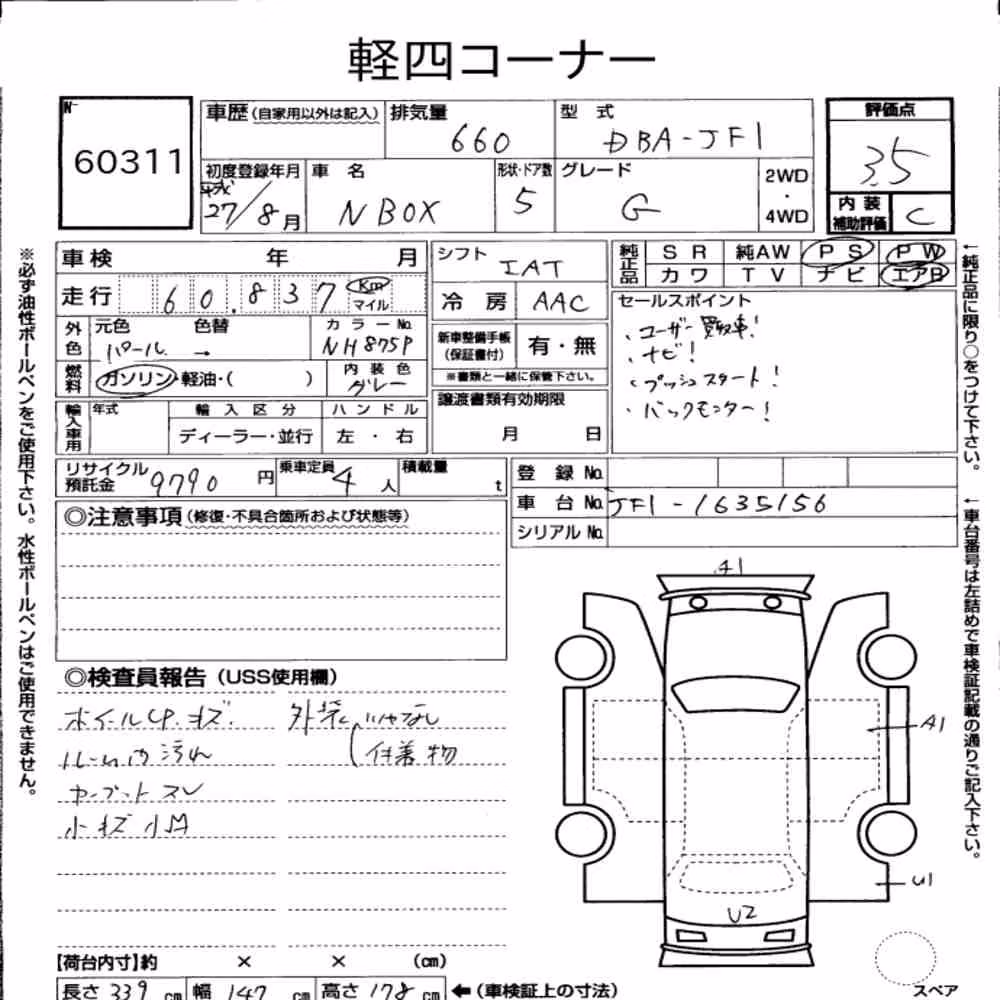 軽四コーナー
No. 60311
車歴(自家用以外は記入) 排気量 660 型式 DBA-JF1
評価点 3.5
初度登録年月 平成27/8月 車名 N BOX 形状・ドア数 5 グレード G 2WD・4WD
内装補助評価 C
車検 年 月
シフト IAT
純正品 SR 純AW PS PW
カワ TV ナビ エアB
走行 60.837 Km マイル
冷房 AAC
セールスポイント
・ユーザー買取車!
・ナビ!
・プッシュスタート!
・バックモンター!
外色 元色 パール 色替 → カラーNo. NH875P
新車整備手帳(保証書付) 有・無
※書類と一緒に保管下さい。
燃料 ガソリン・軽油・( ) 内装色 グレー
譲渡書類有効期限
月 日
輸入車用 年式 輸入区分 ハンドル
ディーラー・並行 左・右
リサイクル預託金 9790円 乗車定員 4人 積載量 t
登録No.
車台No. JF1-1635156
シリアルNo.
◎注意事項(修復・不具合箇所および状態等)
◎検査員報告(USS使用欄)
ホイールCP.キズ.
ルーム内汚れ
カープットスレ
小キズ小凹
付着物
A1
A1
U1
U2
スペア
【荷台内寸】約 × × (cm)
長さ 339 cm 幅 147 cm 高さ 178 cm ←(車検証上の寸法)
※必ず油性ボールペンをご使用下さい。水性ボールペンはご使用できません。
←純正品に限り○をつけて下さい。
←車台番号は左詰めで車検証記載の通りご記入下さい。